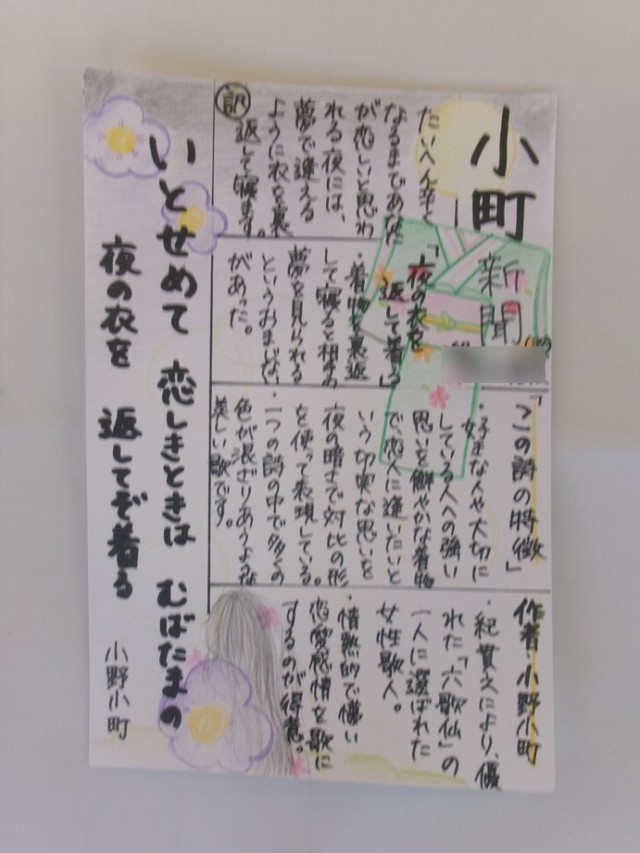 小町
新聞
「この詩の特徴」
・好きな人や大切に
している人への強い
思いを鮮やかな着物
で、恋人に逢いたいと
いう切実な思いを
夜の暗さで対比の形
を使って表現している。
・一つの詩の中で多くの
色が混ざりあうような
美しい歌です。
作者 小野小町
・紀貫之により、優
れた「六歌仙」の
一人に選ばれた
女性歌人。
・情熱的で儚い
恋愛感情を歌に
するのが得意。
「夜の衣を
返して着る」
・着物を裏返
して寝ると相手の
夢を見られる
というおまじない
があった。
訳
たいへん辛く
なるまであなた
が恋しいと思わ
れる夜には、
夢で逢える
ように衣を裏
返して寝ます。
いとせめて 恋しきときは むばたまの
夜の衣を 返してぞ着る
小野小町